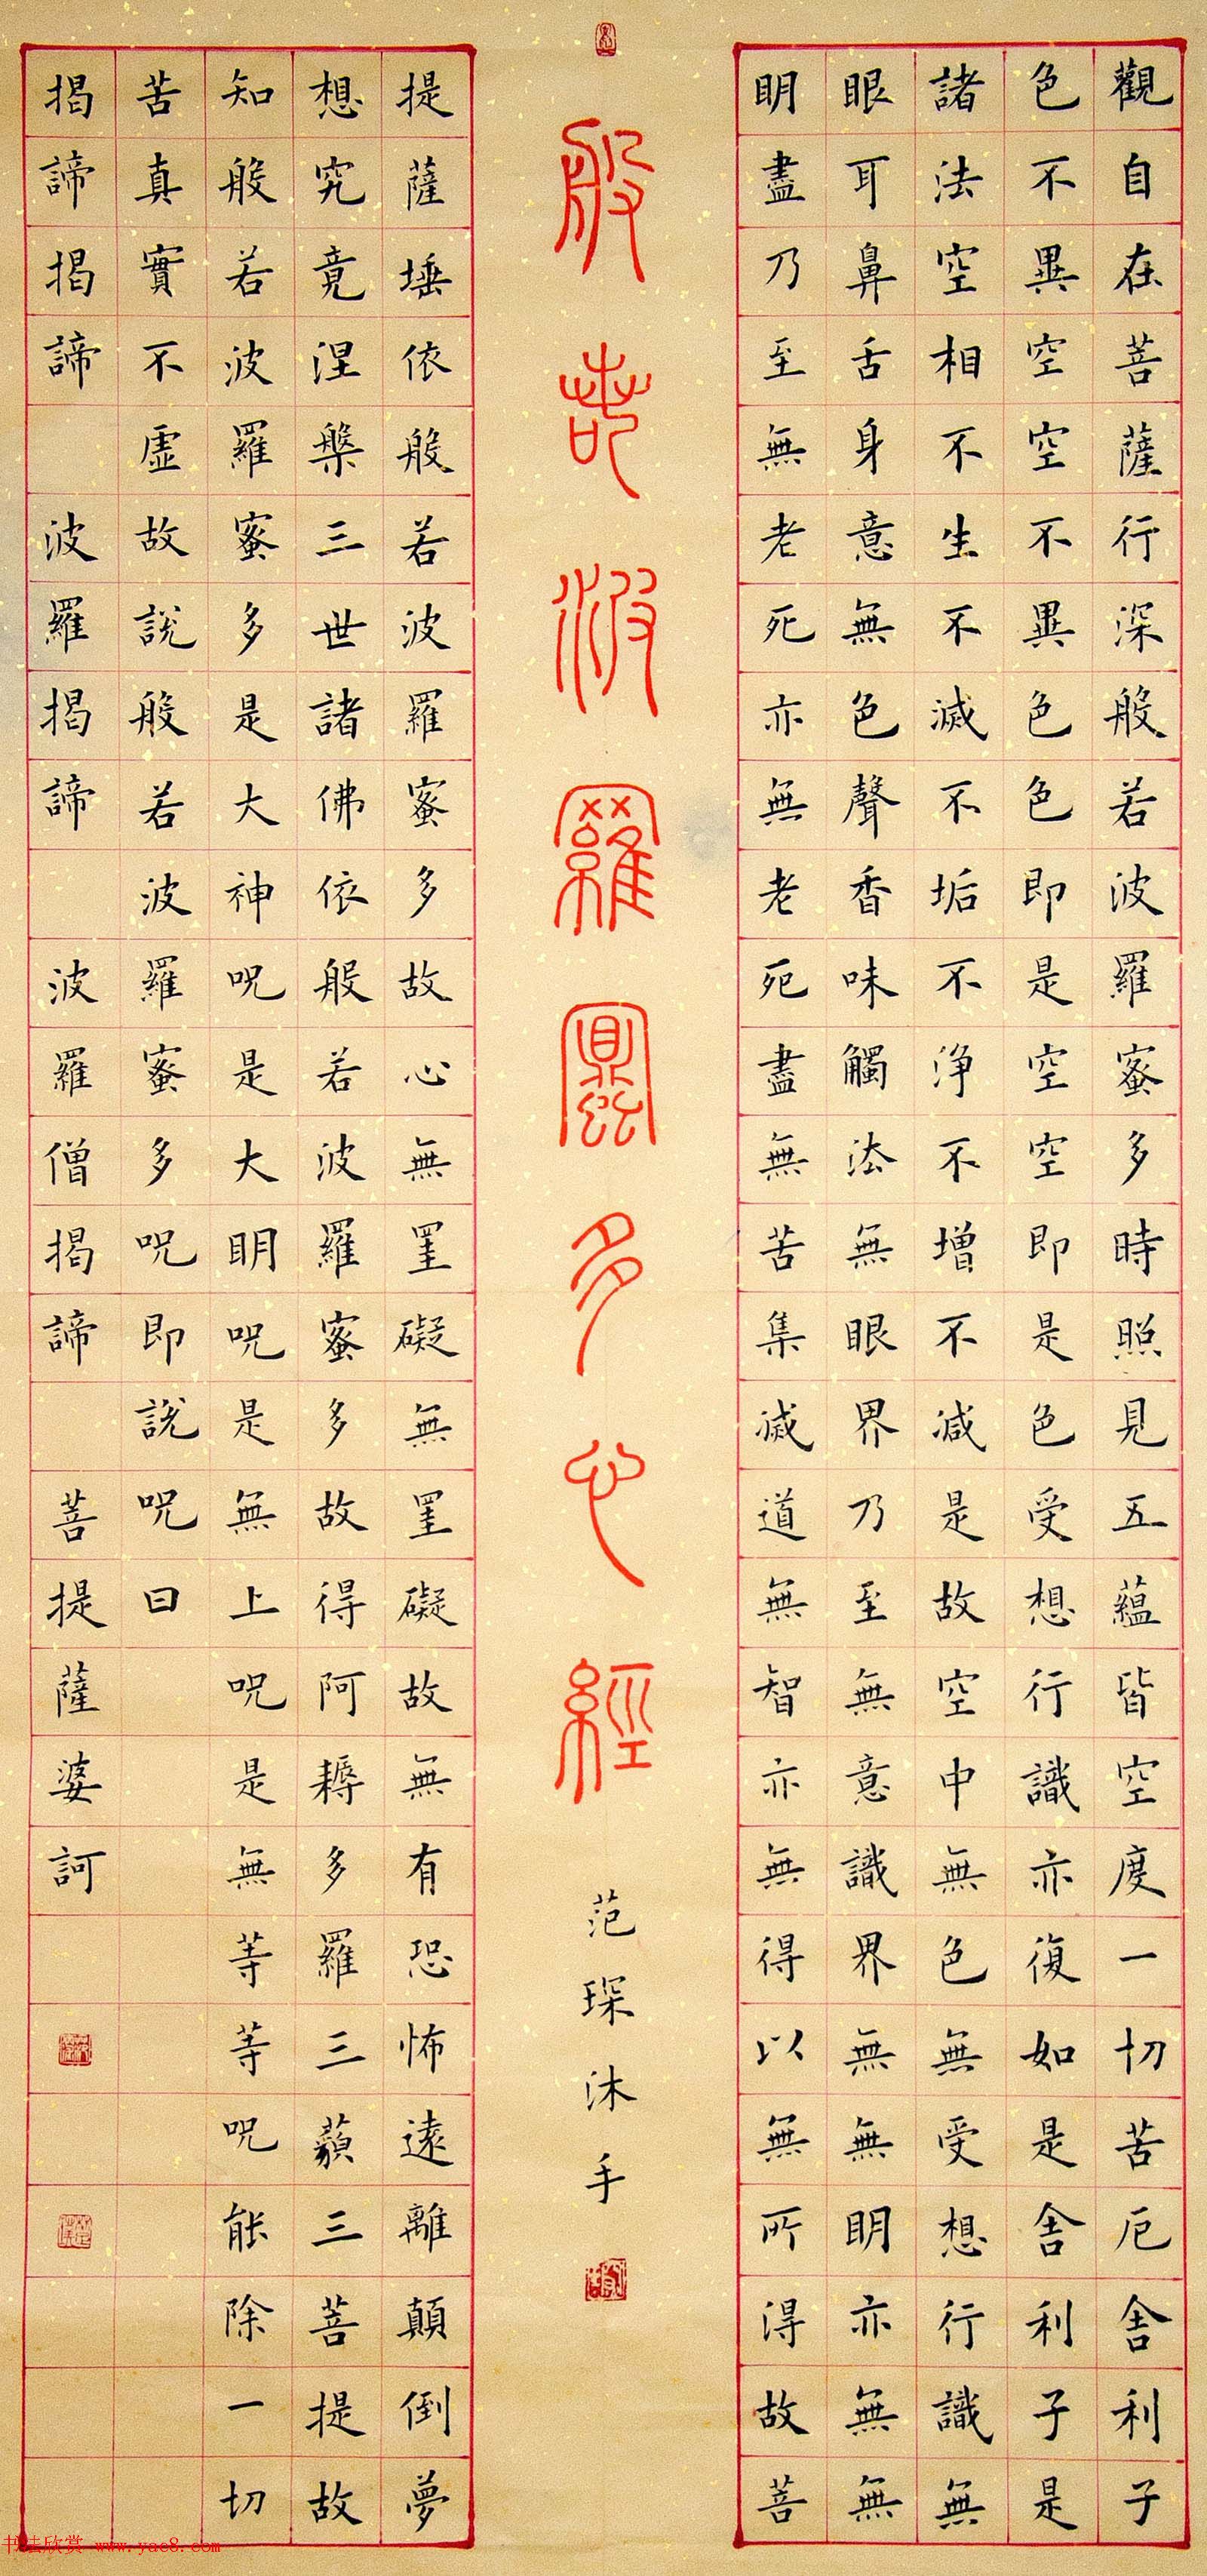 觀自在菩薩行深般若波羅蜜多時照見五蘊皆空度一切苦厄舍利子
色不異空空不異色色即是空空即是色受想行識亦復如是舍利子是
諸法空相不生不滅不垢不淨不增不減是故空中無色無受想行識無
眼耳鼻舌身意無色聲香味觸法無眼界乃至無意識界無無明亦無無
明盡乃至無老死亦無老死盡無苦集滅道無智亦無得以無所得故菩
般若波羅蜜多心經
范琛沐手
提薩埵依般若波羅蜜多故心無罣礙無罣礙故無有恐怖遠離顛倒夢
想究竟涅槃三世諸佛依般若波羅蜜多故得阿耨多羅三藐三菩提故
知般若波羅蜜多是大神呪是大明呪是無上呪是無等等呪能除一切
苦真實不虛故說般若波羅蜜多呪即說呪曰
揭諦揭諦 波羅揭諦 波羅僧揭諦 菩提薩婆訶
书法欣赏 www.yac8.com